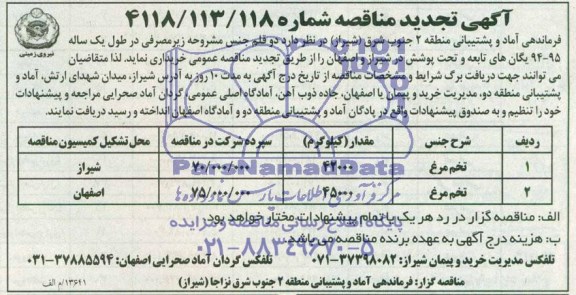 آگهی تجدید مناقصه شماره ۴۱۱۸/۱۱۳/۱۱۸
نیروی زمینی
فرماندهی آماد و پشتیبانی منطقه ۲ جنوب شرق (شیراز) در نظر دارد دو قلم جنس مشروحه زیرمصرفی در طول یک ساله
۹۵-۹۴ یگان های تابعه و تحت پوشش در شیراز و اصفهان را از طریق تجدید مناقصه عمومی خریداری نماید. لذا متقاضیان
می توانند جهت دریافت برگ شرایط و مشخصات مناقصه از تاریخ درج آگهی به مدت ۱۰ روز به آدرس شیراز، میدان شهدای ارتش، آماد و
پشتیبانی منطقه دو، مدیریت خرید و پیمان یا اصفهان، جاده ذوب آهن، آمادگاه اصلی عمومی، گردان آماد صحرایی مراجعه و پیشنهادات
خود را تنظیم و به صندوق پیشنهادات واقع در پادگان آماد و پشتیبانی منطقه دو و آمادگاه اصفهان انداخته و رسید دریافت نمایند.
ردیف شرح جنس مقدار (کیلوگرم) سپرده شرکت در مناقصه محل تشکیل کمیسیون مناقصه
۱ تخم مرغ ۴۲۰۰۰ ۷۰/۰۰۰/۰۰۰ شیراز
۲ تخم مرغ ۴۵۰۰۰ ۷۵/۰۰۰/۰۰۰ اصفهان
ParsNamadData
پایگاه اطلاع رسانی مناقصه و مزایده
الف: مناقصه گزار در رد هر یک یا تمام پیشنهادات مختار خواهد بود.
ب: هزینه درج آگهی به عهده برنده مناقصه می باشد.
۰۲۱-۸۸۳۴۹۶۷۰-۵
تلفکس مدیریت خرید و پیمان شیراز: ۳۷۳۹۸۰۸۲-۰۷۱ تلفکس گردان آماد صحرایی اصفهان: ۳۷۸۸۵۵۹۴-۰۳۱
مناقصه گزار: فرماندهی آماد و پشتیبانی منطقه ۲ جنوب شرق نزاجا (شیراز)
۱۳۶۴۱/م الف